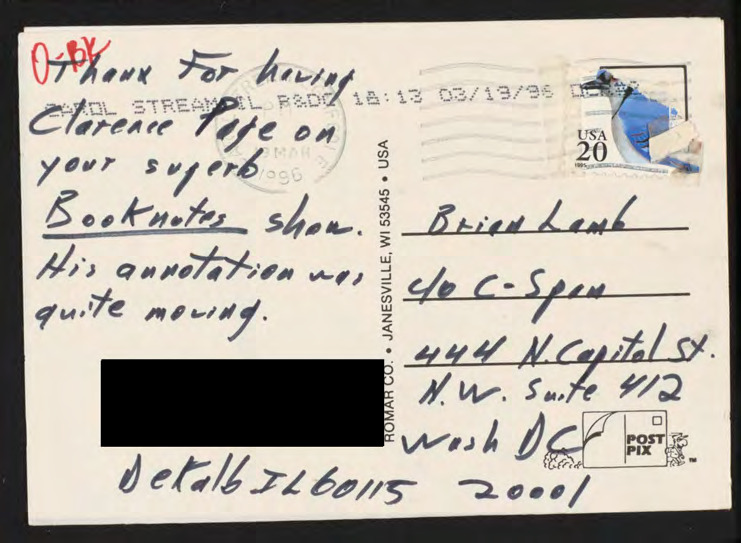 O-BK
Thank For having
Clarence Page on
your superb
Booknotes show.
His annotation was
quite moving.
DeKalb IL 60115
CAROL STREAM IL P&DC 18:13 03/19/96
MAR
1996
USA
20
1995
ROMAR CO. • JANESVILLE, WI 53545 • USA
Brian Lamb
c/o C-Span
444 N. Capitol St.
N.W. Suite 412
Wash DC
20001
POST
PIX
TM